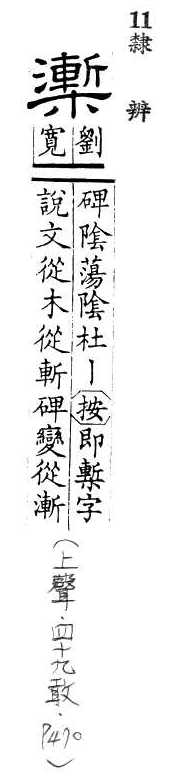 11 隸辨
㯥
劉寬
碑陰蕩陰杜丨按即槧字
說文從木從斬碑變從漸
（上聲．四十九敢．P470）